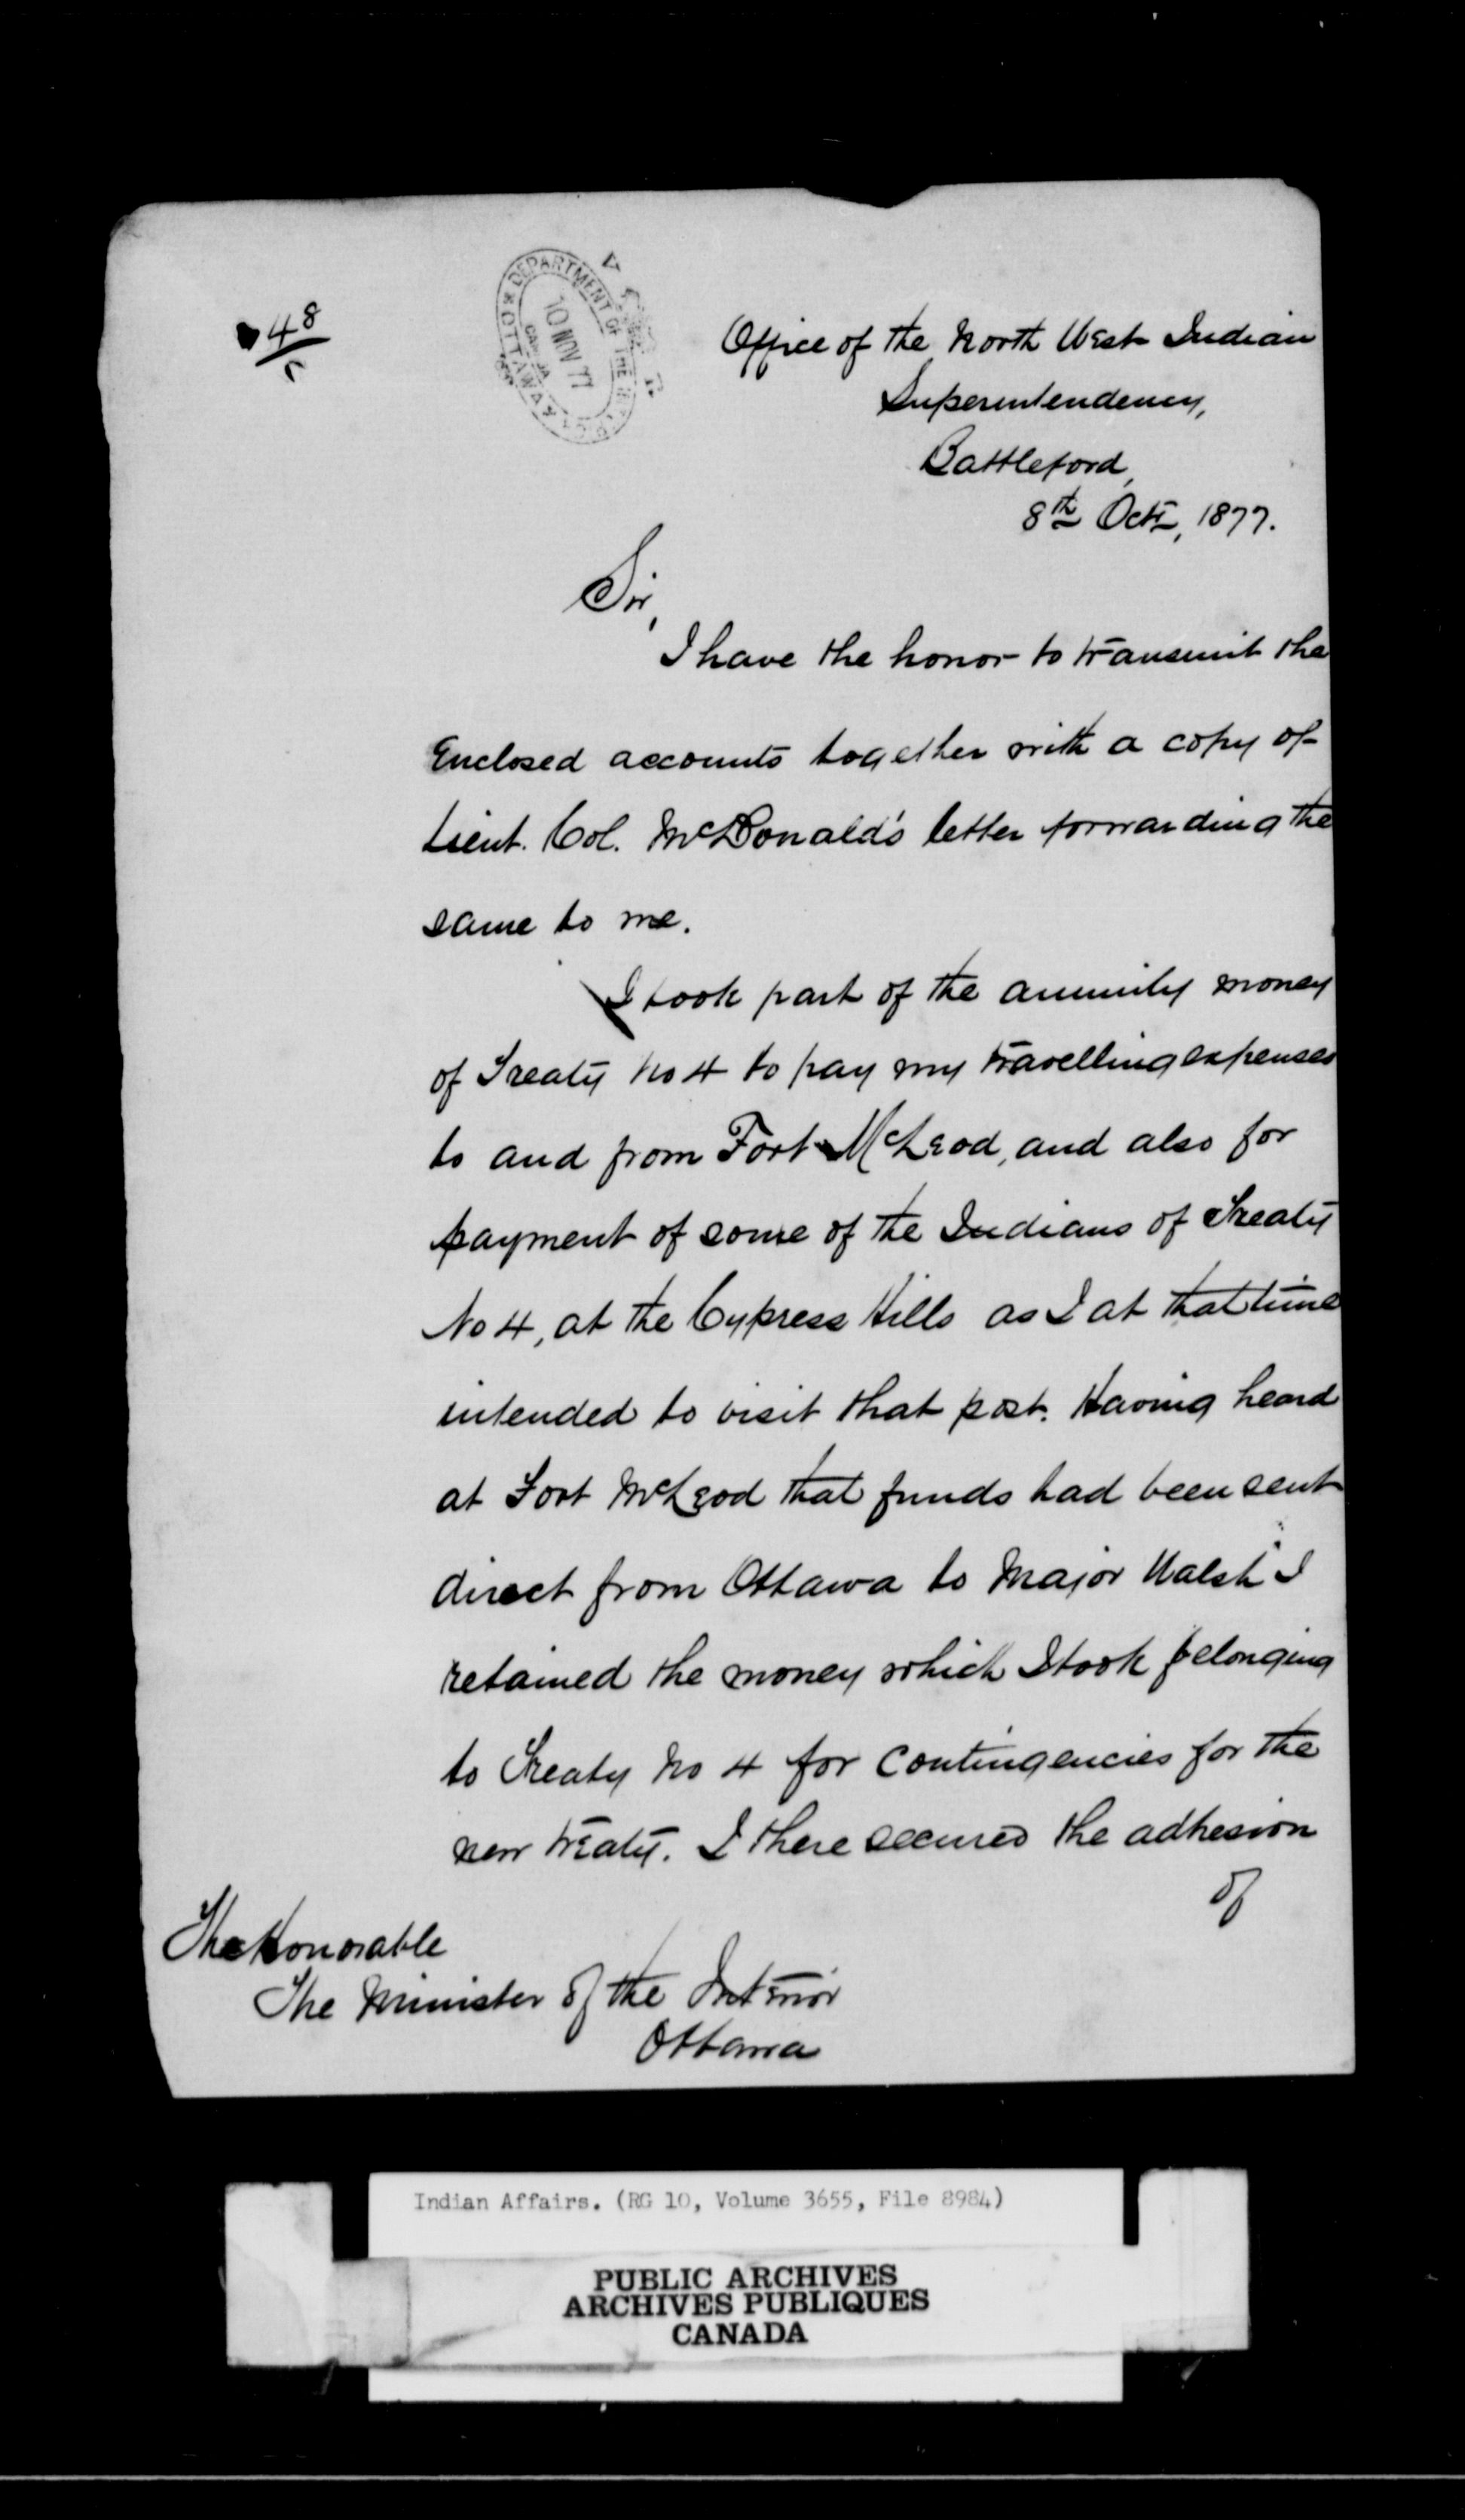 48
DEPARTMENT OF THE
10 NOV 77
CANADA
OTTAWA
Office of the North West Indian
Superintendency,
Battleford,
8th Oct, 1877.
Sir,
I have the honor to transmit the
Enclosed accounts together with a copy of
Lieut. Col. McDonald's letter forwarding the
same to me.
I took part of the annuity money
of Treaty No 4 to pay my travelling expenses
to and from Fort McLeod, and also for
payment of some of the Indians of Treaty
No 4, at the Cypress Hills as I at that time
intended to visit that post. Having heard
at Fort McLeod that funds had been sent
direct from Ottawa to Major Walsh I
retained the money which I took belonging
to Treaty No 4 for contingencies for the
new treaty. I there secured the adhesion
of
The Honorable
The Minister of the Interior
Ottawa
Indian Affairs. (RG 10, Volume 3655, File 8984)
PUBLIC ARCHIVES
ARCHIVES PUBLIQUES
CANADA